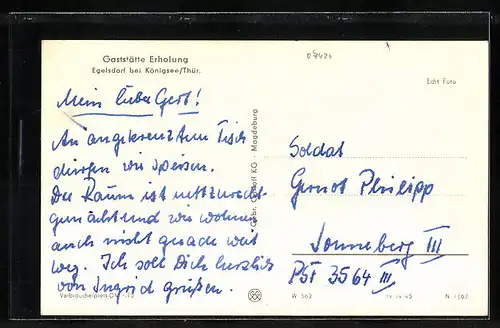 Gaststätte Erholung
Egelsdorf bei Königsee/Thür.
Mein lieber Gert!
An angekreuztem Tisch
dürfen wir speisen.
Der Raum ist nett zurecht
gemacht und wir wohnen
auch nicht gerade weit
weg. Ich soll Dich herzlich
von Ingrid grüßen.
Verbraucherpreis DM
Gebr. KG · Magdeburg
Echt Foto
Soldat
Gernot Philipp
Sonneberg III
PSF 3564 III
W 562
IV 14 45
N 1/67